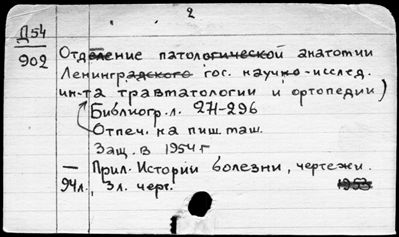 2
Д54
902
Отделение патологической анатомии
Ленинградского гос. научно-исслед.
ин-та травматологии и ортопедии)
Библиогр. л. 271-296
Отпеч. на пиш. маш.
Защ. в 1954 г
— Прил. Истории болезни, чертежи.
94л., 3л. черт. 1953